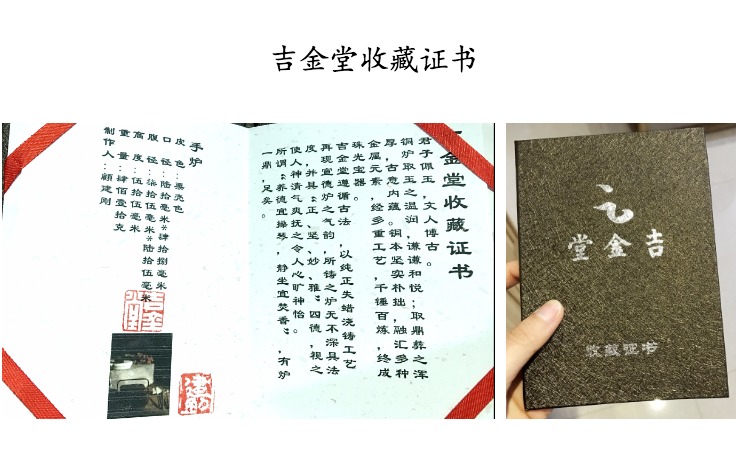 吉金堂收藏证书
金堂收藏证书
君子佩玉，文人博古。
铜炉取玉之温润，谦谦和悦；取鼎彝之浑
厚，古意内蕴。铜本坚实朴拙，融汇多种
金属元素，经多重工艺，千锤百炼，终成
珠光宝器。
吉金堂遵循古法，以纯正失蜡浇铸工艺
再现宣德炉之气韵，所铸之炉无不深具法
度，并具“正、坚、妙、雅”四德，视之
使人神清气爽，抚之令人心旷神怡。
所谓“养德宜操琴，静坐宜焚香”，有炉
一鼎，足矣。
手炉
皮 色：栗壳色
口 径：陆拾毫米*肆拾捌毫米
腹 径：柒拾伍毫米*陆拾伍毫米
高 度：伍拾伍毫米
重 量：肆佰壹拾克
制作人：顾建刚
吉金堂
吉金堂
收藏证书